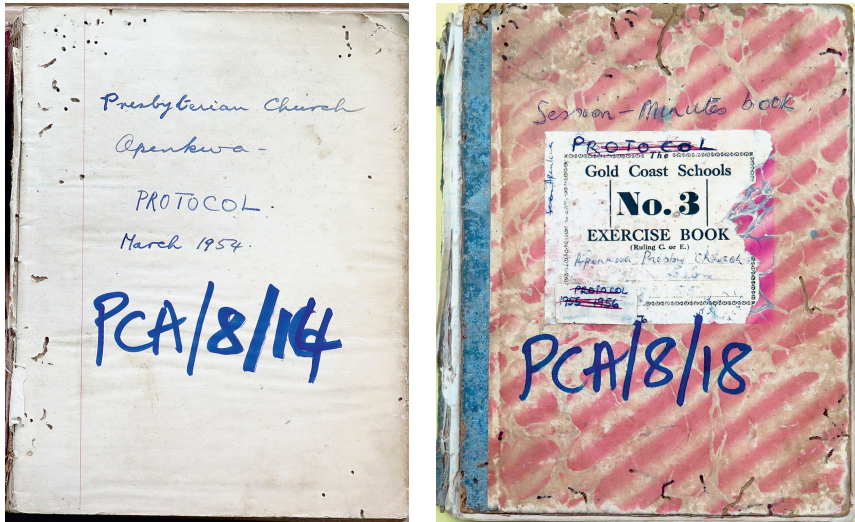 Presbyterian Church
Apenkwa -
PROTOCOL.
March 1954.
PCA/8/14
Session - Minutes book.
PROTOCOL
The
Gold Coast Schools
No. 3
EXERCISE BOOK
(Ruling C. or E.)
Apenkwa Presby Church
PROTOCOL
1955-1956
PCA/8/18